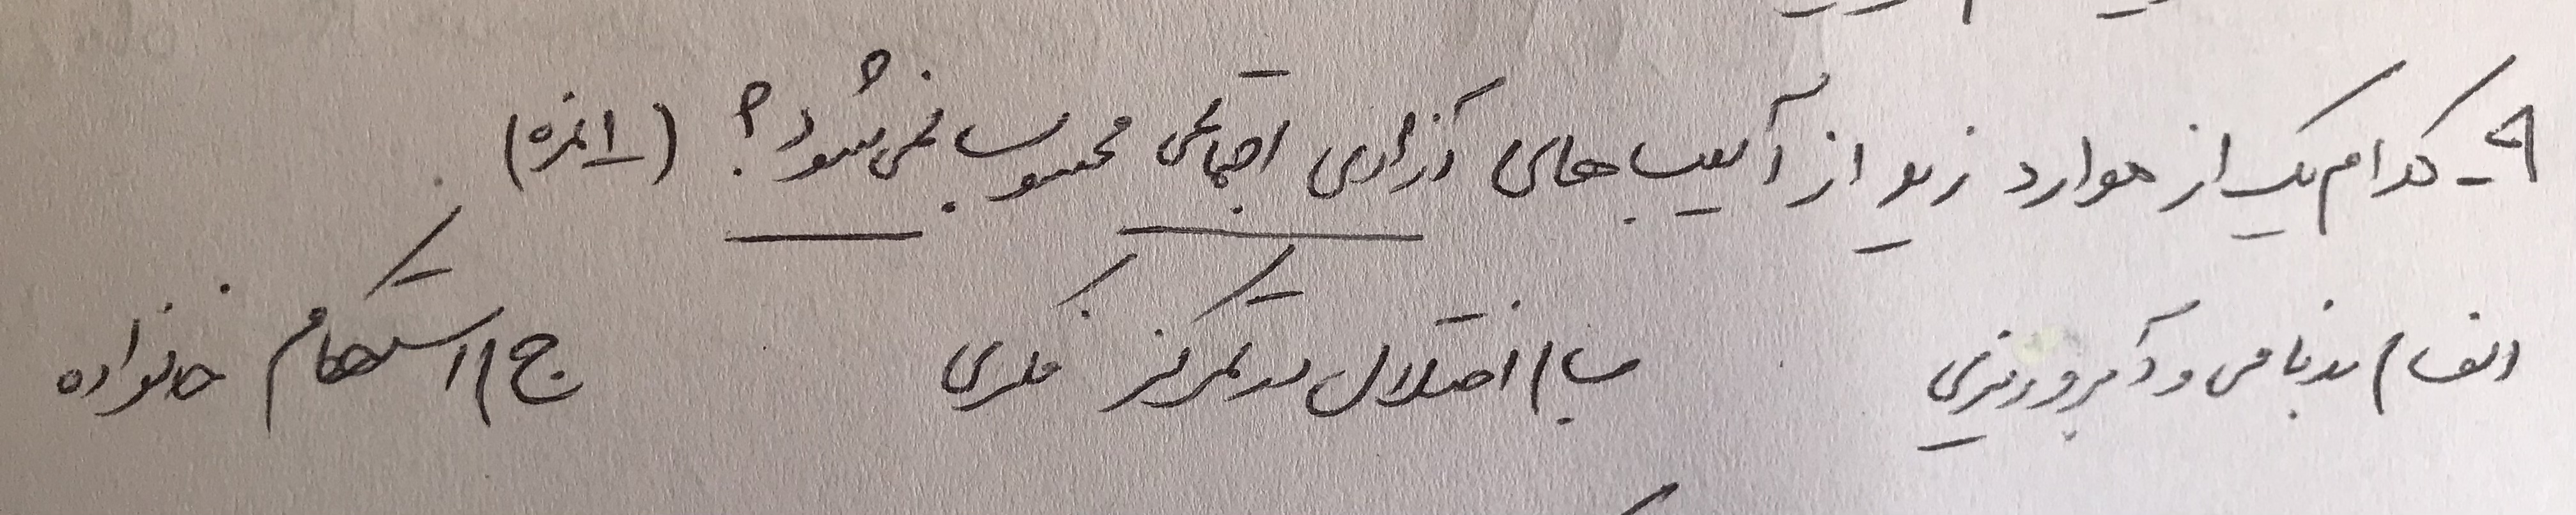 ۹- کدام یک از موارد زیر از آسیب های آزاری اجتماعی محسوب نمی شود؟ (۱ نمره)
الف) بدنامی و آبروریزی ب) اختلال در تمرکز فکری ج) استحکام خانواده